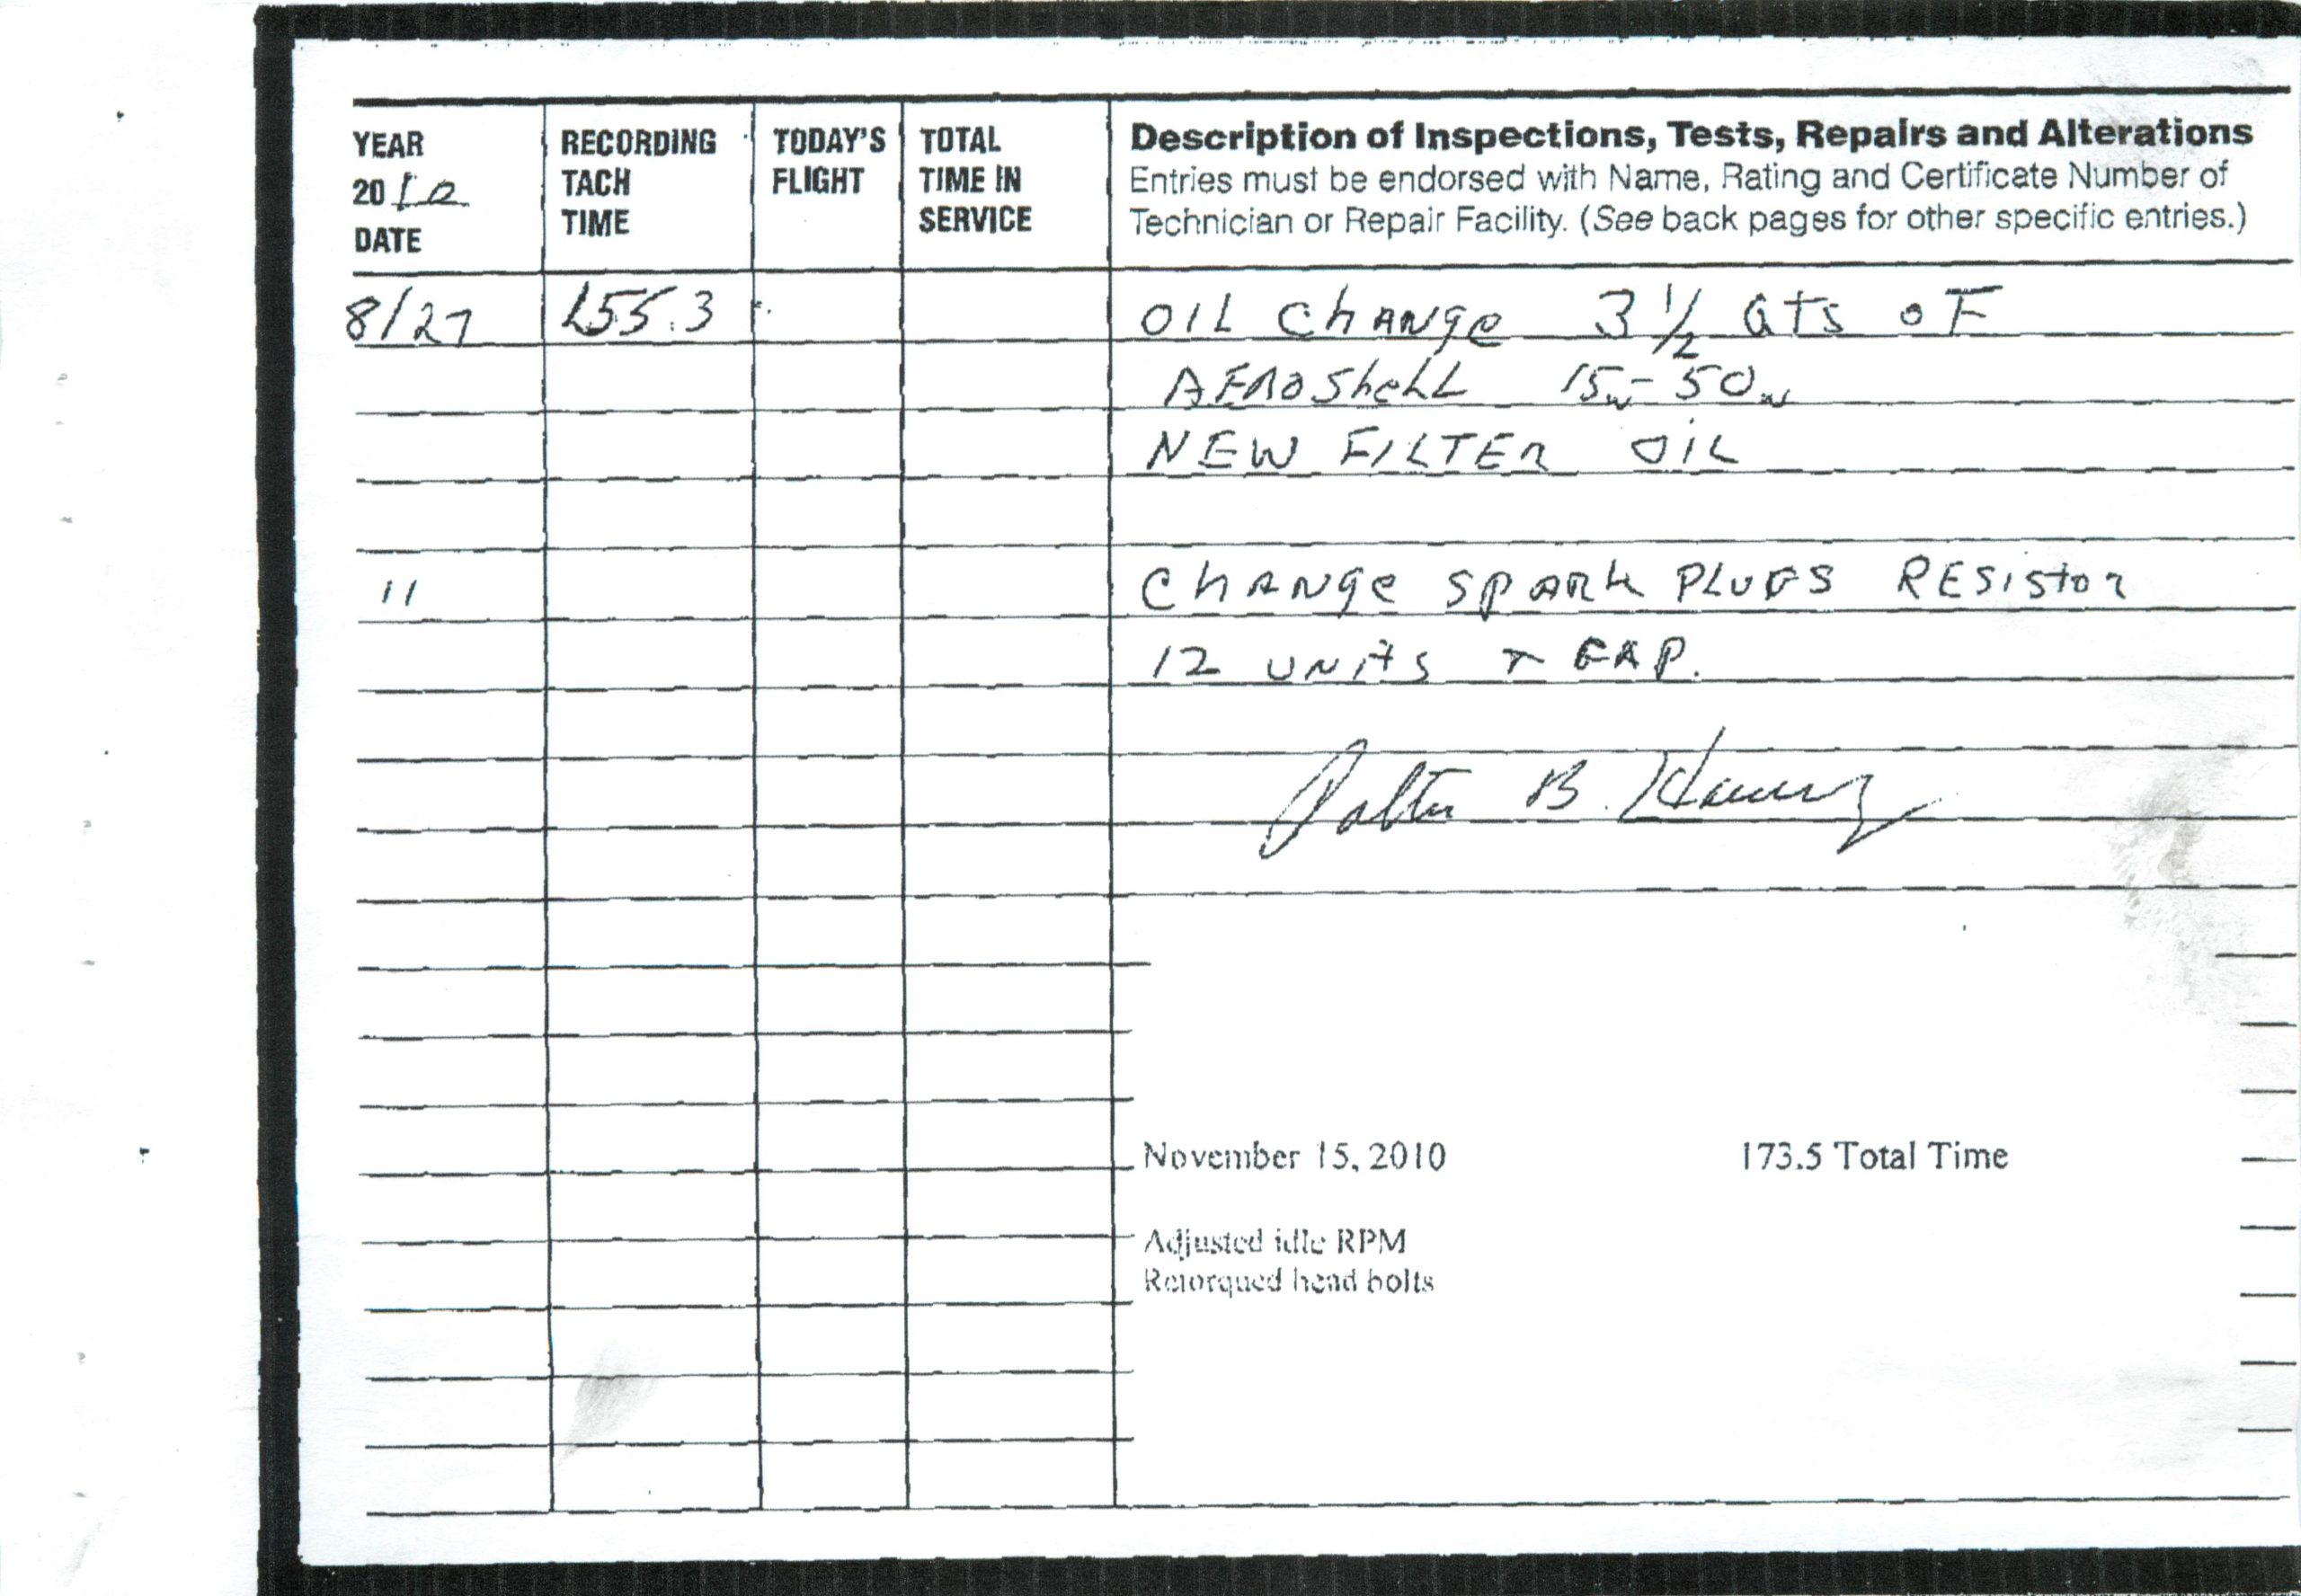 YEAR
2010
DATE
RECORDING
TACH
TIME
TODAY'S
FLIGHT
TOTAL
TIME IN
SERVICE
Description of Inspections, Tests, Repairs and Alterations
Entries must be endorsed with Name, Rating and Certificate Number of
Technician or Repair Facility. (See back pages for other specific entries.)
8/27 155.3 OIL ChANge 3 1/2 Qts oF
AEROShELL 15w-50w
NEW FILTER OIL
" ChANge SPARK PLUGS RESistoR
12 UNitS + GAP.
B.
November 15, 2010 173.5 Total Time
Adjusted idle RPM
Retorqued head bolts